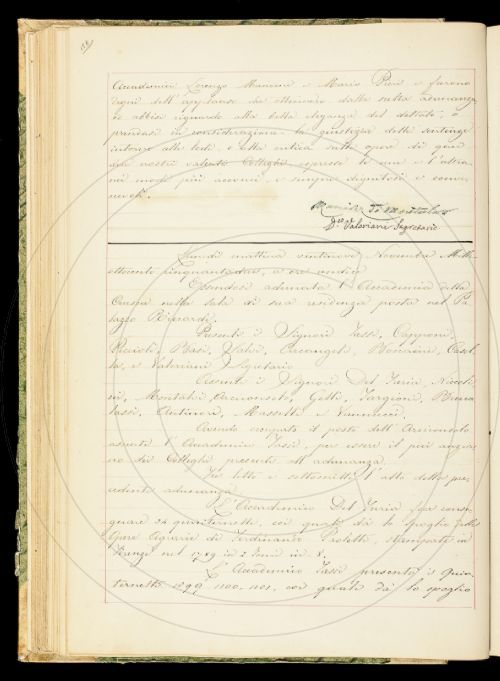 Accademici Lorenzo Mancini e Mario Pieri e furono
degni dell'applauso che ottennero dalla scelta adunanza
se abbia riguardo alla bella eleganza del dettato, o
prendasi in considerazione la giustezza delle sentenze
intorno alle lodi, o alla critica sulle opere di quei
due nostri valenti Colleghi espresse le une e l'altra
nei modi più acconci, e sempre dignitosi e conve
nevoli.
Valeriani Segretario
mattina ventinove Novembre Mille
ottocento cinquantadue, a ore undici
Essendosi adunata l'Accademia della
Crusca nella Sala di sua residenza posta nel Pa
lazzo Riccardi.
Presenti i Signori Tassi, Capponi,
Bonaini, Casel
la, e Valeriani Segretario
Assenti i Signori Del Furia, Niccoli
ni, Montalvi, Gelli, Targioni, Brucia
tassi, Antinori, Masselli e Vannucci.
Avendo occupato il posto dell'Arciconsolo
assente l'Accademico Tassi, per essere il più anzia
no dei Colleghi presenti all'adunanza.
Fu letto e sottoscritto l'atto della pre
cedente adunanza.
L'Accademico Del Furia, fa conse
gnare 24 quadernetti, coi quali dà lo spoglio delle
Opere Agrarie di Ferdinando Paoletti, stampate in
Firenze nel 1789 in 2 Tomi in 8.
L'Accademico Tassi presenta i Quin
ternetti 1099, 1100, 1101, coi quali dà lo spoglio